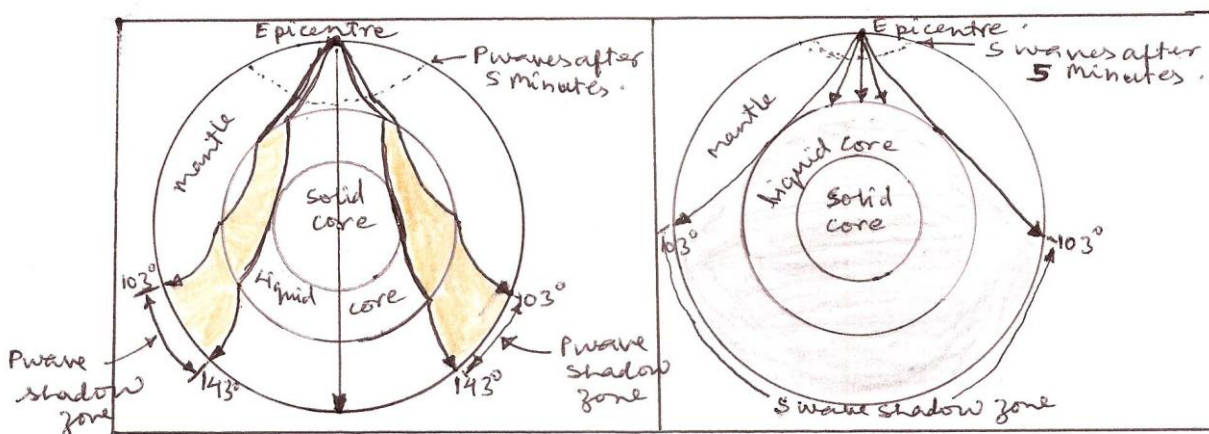 Epicentre
P waves after
5 Minutes.
mantle
Solid
core
Liquid
core
103°
103°
143°
143°
P wave
shadow
zone
P wave
shadow
zone
Epicentre
S waves after
5 Minutes.
mantle
Liquid core
Solid
core
103°
103°
S wave shadow zone